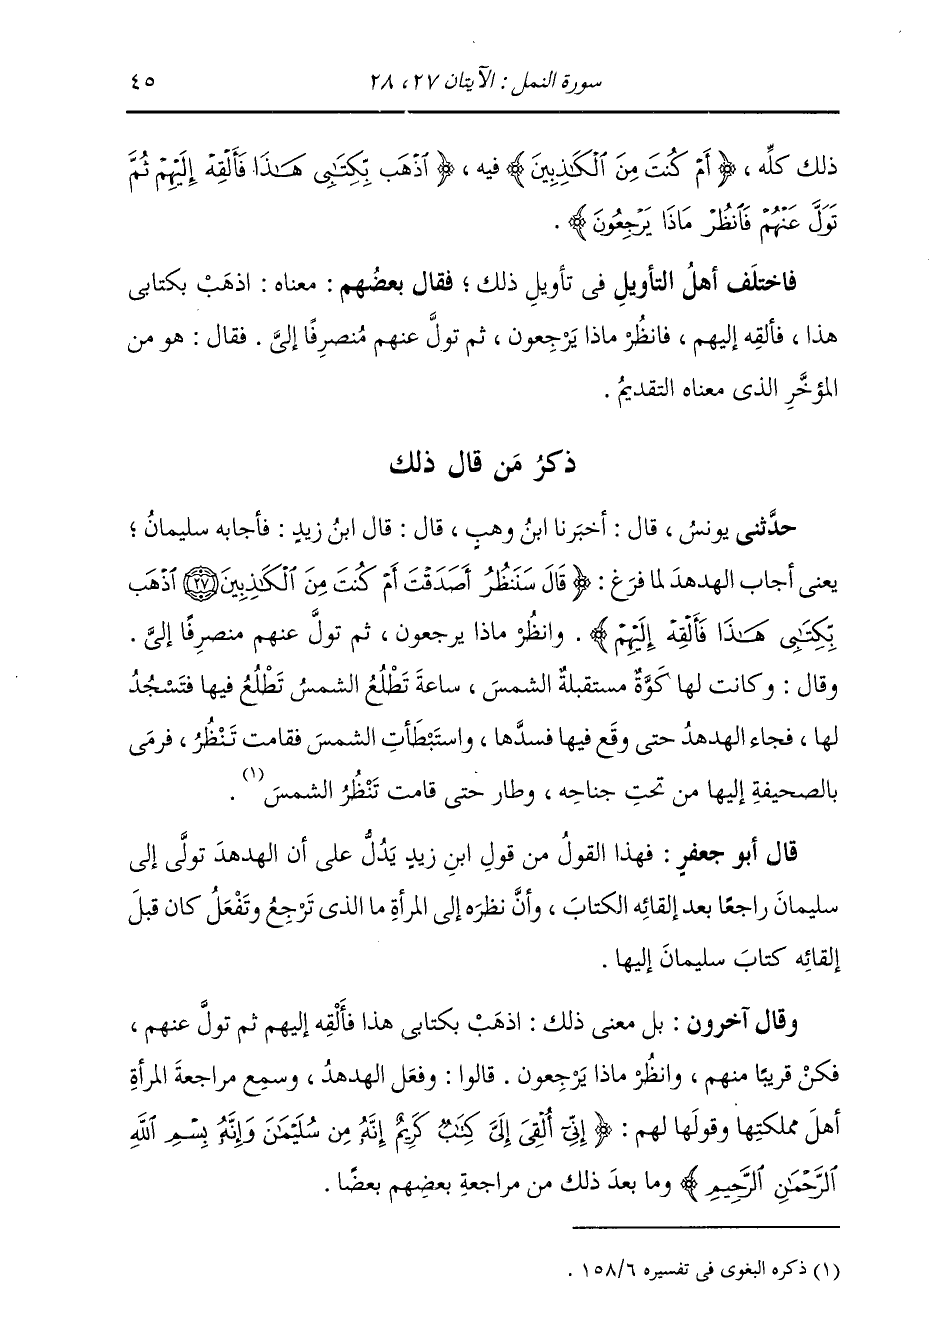 سورة النمل : الآيتان ٢٧ ، ٢٨ ٤٥
ذلك كلِّه ، ﴿ أَمْ كُنتَ مِنَ ٱلْكَٰذِبِينَ ﴾ فيه ، ﴿ ٱذْهَب بِّكِتَٰبِى هَٰذَا فَأَلْقِهْ إِلَيْهِمْ ثُمَّ
تَوَلَّ عَنْهُمْ فَٱنظُرْ مَاذَا يَرْجِعُونَ ﴾ .
فاختلَف أهلُ التأويلِ فى تأويلِ ذلك ؛ فقال بعضُهم : معناه : اذهَبْ بكتابى
هذا ، فألقِه إليهم ، فانظُرْ ماذا يَرْجِعون ، ثم تولَّ عنهم مُنصرِفًا إلىَّ . فقال : هو من
المؤخَّرِ الذى معناه التقديمُ .
ذكرُ مَن قال ذلك
حدَّثنى يونسُ ، قال : أخبَرنا ابنُ وهبٍ ، قال : قال ابنُ زيدٍ : فأجابه سليمانُ ؛
يعنى أجاب الهدهدَ لما فرَغ : ﴿ قَالَ سَنَنظُرُ أَصَدَقْتَ أَمْ كُنتَ مِنَ ٱلْكَٰذِبِينَ ﴿٢٧﴾ ٱذْهَب
بِّكِتَٰبِى هَٰذَا فَأَلْقِهْ إِلَيْهِمْ ﴾ . وانظُرْ ماذا يرجعون ، ثم تولَّ عنهم منصرِفًا إلىَّ .
وقال : وكانت لها كَوَّةٌ مستقبلةٌ الشمسَ ، ساعةَ تَطْلُعُ الشمسُ تَطْلُعُ فيها فتَسْجُدُ
لها ، فجاء الهدهدُ حتى وقَع فيها فسدَّها ، واستَبْطَأتِ الشمسَ فقامت تَنْظُرُ ، فرمَى
بالصحيفةِ إليها من تحتِ جناحِه ، وطار حتى قامت تَنْظُرُ الشمسَ(١) .
قال أبو جعفرٍ : فهذا القولُ من قولِ ابنِ زيدٍ يَدُلُّ على أن الهدهدَ تولَّى إلى
سليمانَ راجعًا بعد إلقائِه الكتابَ ، وأنَّ نظرَه إلى المرأةِ ما الذى تَرْجِعُ وتَفْعَلُ كان قبلَ
إلقائِه كتابَ سليمانَ إليها .
وقال آخرون : بل معنى ذلك : اذهَبْ بكتابى هذا فأَلْقِه إليهم ثم تولَّ عنهم ،
فكنْ قريبًا منهم ، وانظُرْ ماذا يَرْجِعون . قالوا : وفعَل الهدهدُ ، وسمِع مراجعةَ المرأةِ
أهلَ مملكتِها وقولَها لهم : ﴿ إِنِّىٓ أُلْقِىَ إِلَىَّ كِتَٰبٌ كَرِيمٌ إِنَّهُۥ مِن سُلَيْمَٰنَ وَإِنَّهُۥ بِسْمِ ٱللَّهِ
ٱلرَّحْمَٰنِ ٱلرَّحِيمِ ﴾ وما بعدَ ذلك من مراجعةِ بعضِهم بعضًا .
(١) ذكره البغوى فى تفسيره ١٥٨/٦ .